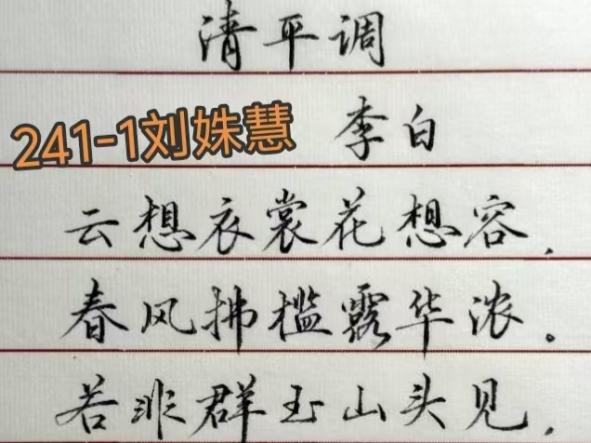 清平调
241-1刘姝慧
李白
云想衣裳花想容，
春风拂槛露华浓。
若非群玉山头见，